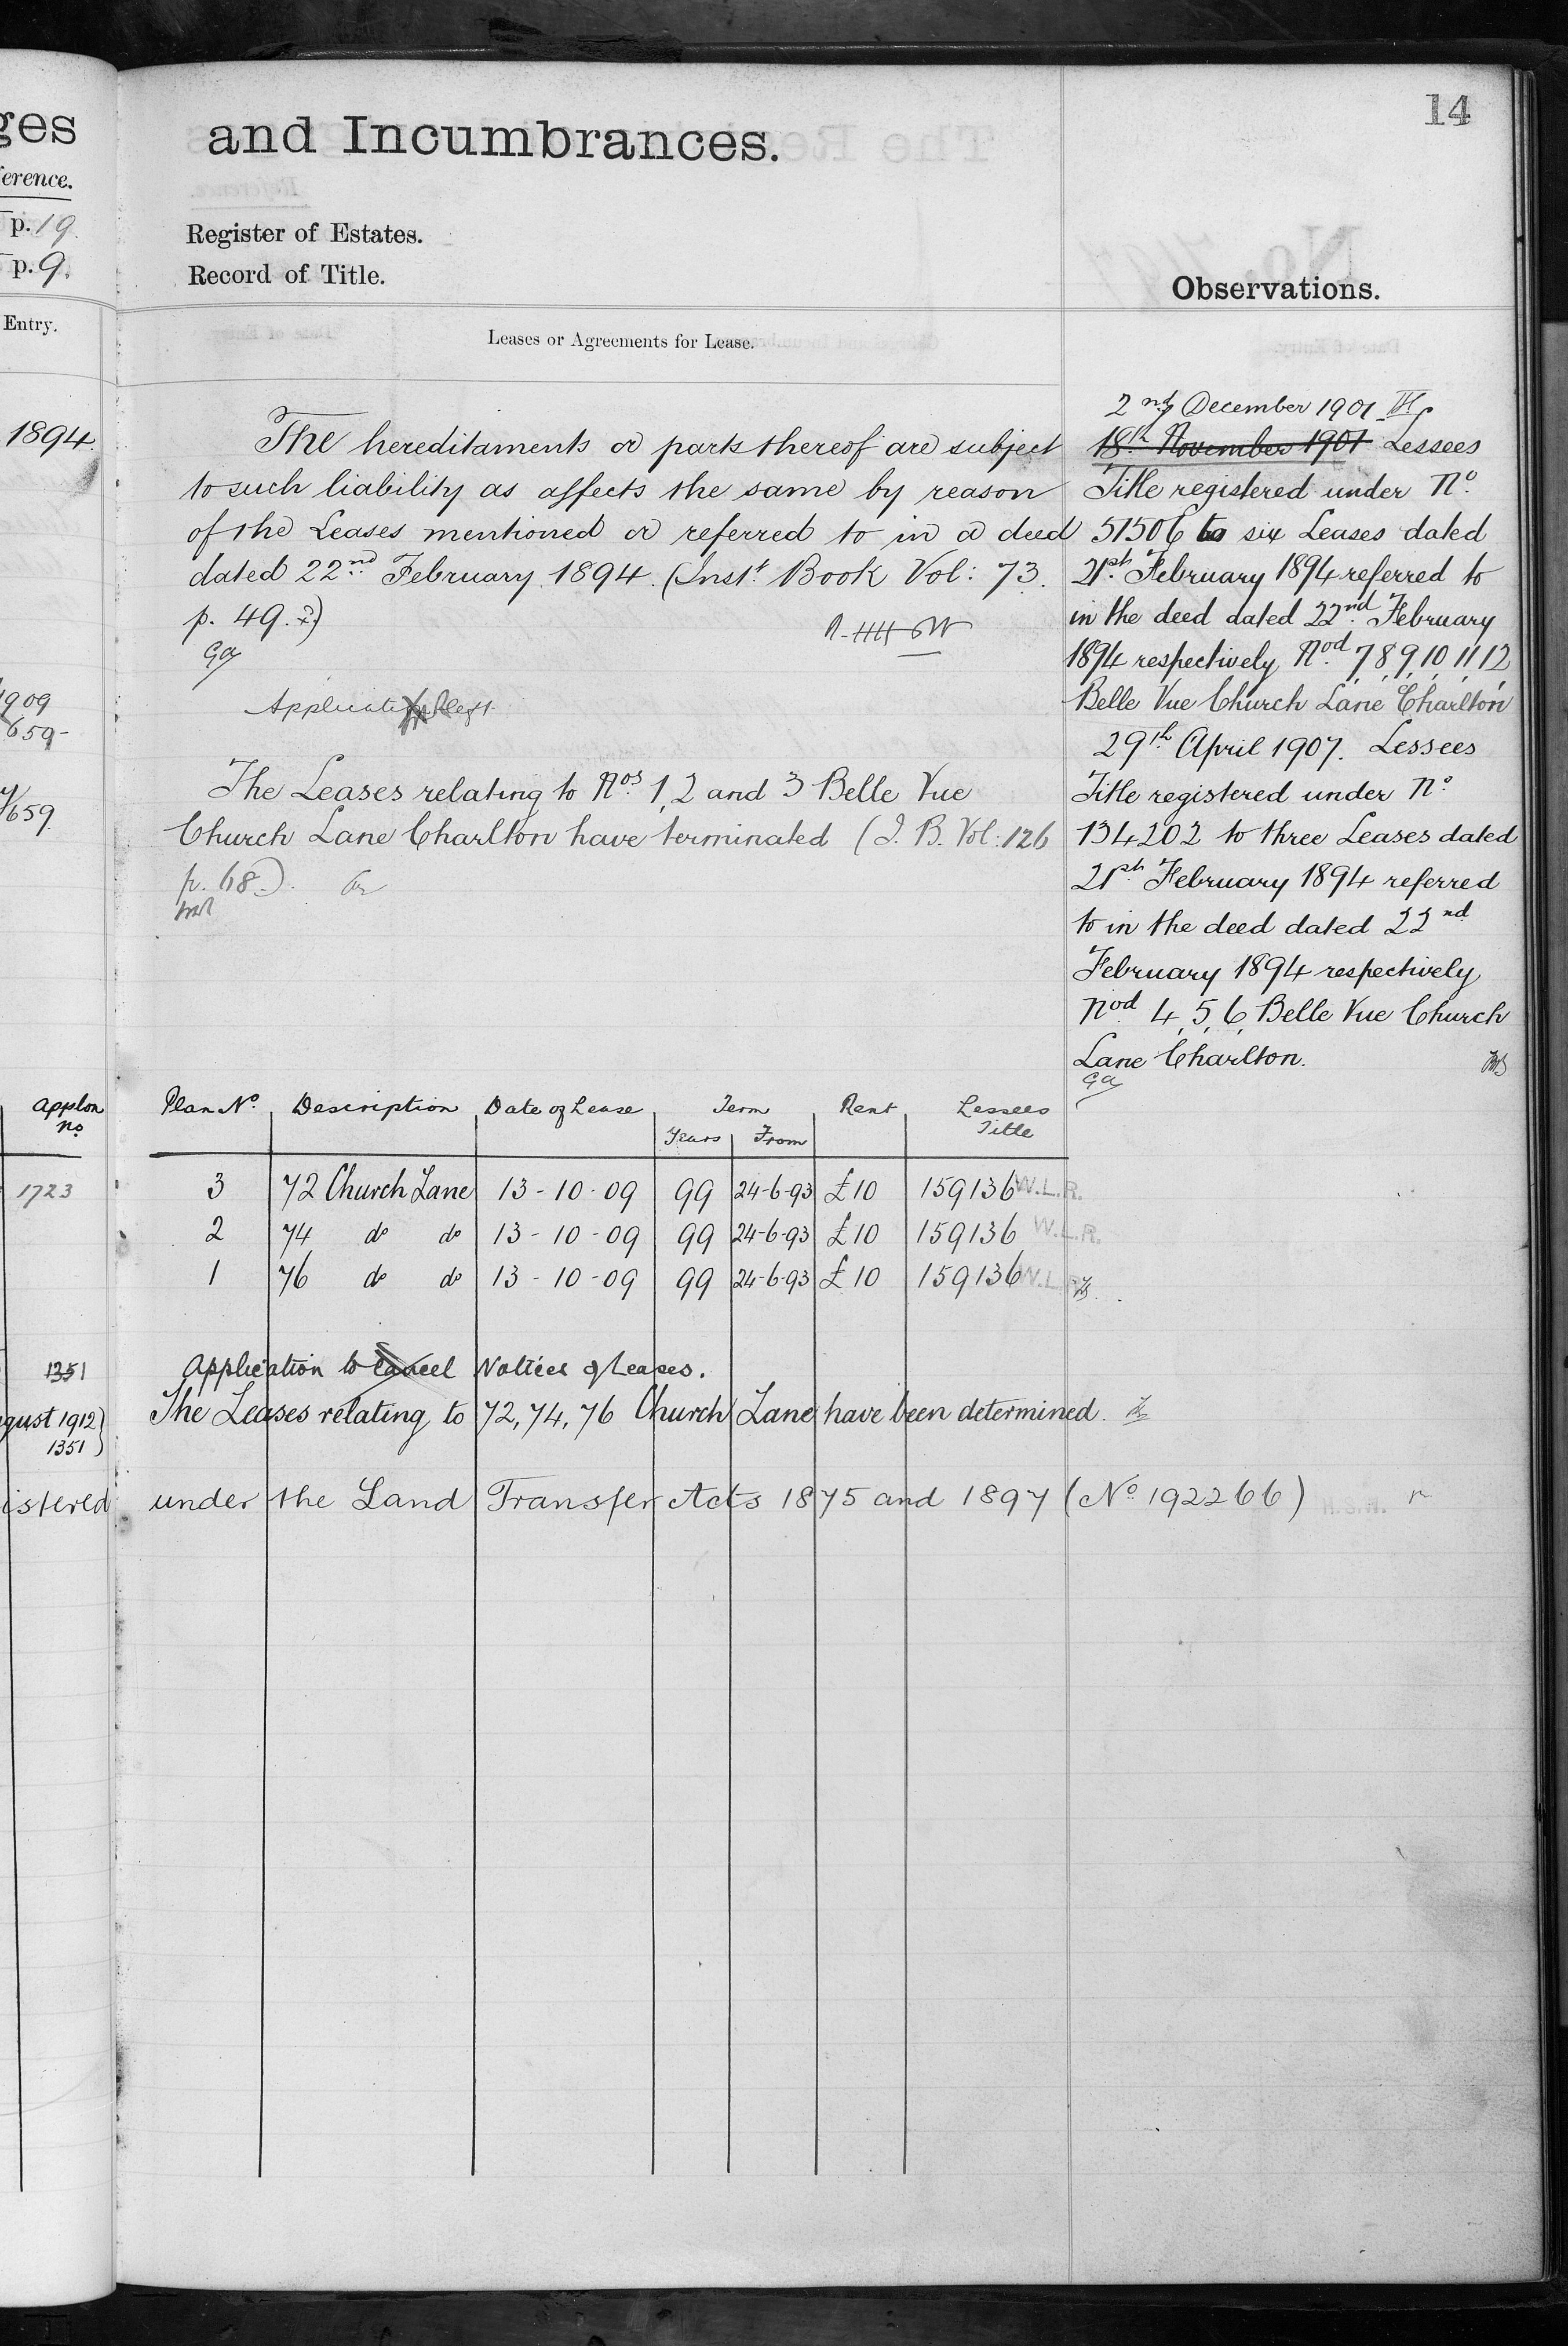 14
ges
and Incumbrances.
erence.
p. 19.
Register of Estates.
p. 9.
Record of Title.
Observations.
Entry.
Leases or Agreements for Lease.
1894.
The hereditaments or parts thereof are subject
to such liability as affects the same by reason
of the Leases mentioned or referred to in a deed
dated 22nd February 1894. (Inst. Book Vol: 73.
p. 49. 2)
Ga
1909
659-
659.
The Leases relating to Nos. 1, 2 and 3 Belle Vue
Church Lane Charlton have terminated (I. B. Vol: 126
p. 68.)
2nd December 1901
18th November 1901 Lessees
Title registered under No.
51506 to six Leases dated
21st February 1894 referred to
in the deed dated 22nd February
1894 respectively Nod. 7, 8, 9, 10, 11, 12,
Belle Vue Church Lane Charlton
29th April 1907. Lessees
Title registered under No.
134202 to three Leases dated
21st February 1894 referred
to in the deed dated 22nd
February 1894 respectively
Nod. 4, 5, 6, Belle Vue Church
Lane Charlton.
Ga
Applon No. Plan No. Description Date of Lease Term Rent Lessees Title
Years From
1723 3 72 Church Lane 13-10-09 99 24-6-93 £10 159136 W.L.R.
2 74 do do 13-10-09 99 24-6-93 £10 159136 W.L.R.
1 76 do do 13-10-09 99 24-6-93 £10 159136 W.L.R.
1351 Application to cancel Notices of Leases.
gust 1912) The Leases relating to 72, 74, 76 Church Lane have been determined.
1351)
istered under the Land Transfer Acts 1875 and 1897 (No. 192266)